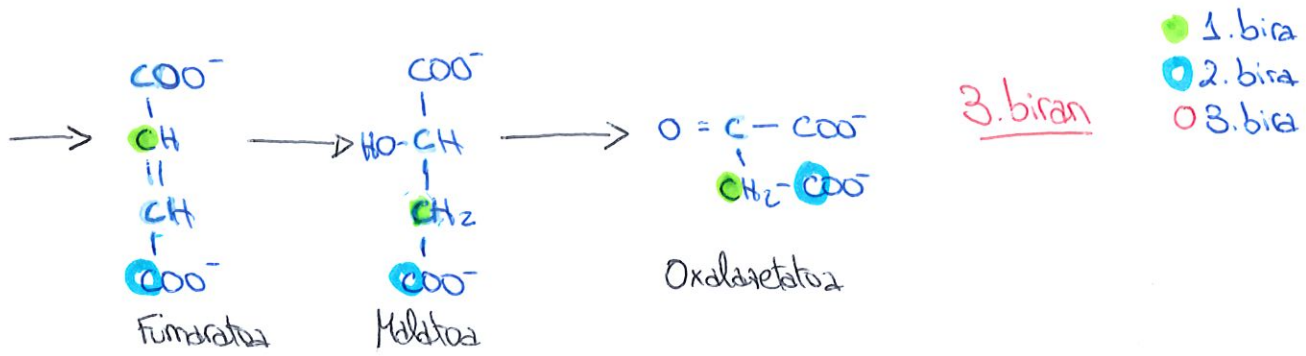 1. bira
2. bira
3. bira
3. biran
COO⁻
CH
||
CH
COO⁻
Fumaratoa
COO⁻
HO-CH
CH₂
COO⁻
Malatoa
O = C — COO⁻
CH₂-COO⁻
Oxalazetatoa